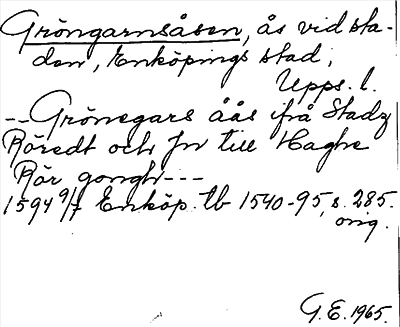 Gröngarnsåsen, ås vid sta-
den, Enköpings stad,
Upps. l.
-- Grönegars åås ifrå Stadz
Röredt och Jn till Haghe
Rör gongh ---
1594 9/7 Enköp. tb 1540-95, s. 285.
orig.
G.E. 1965.